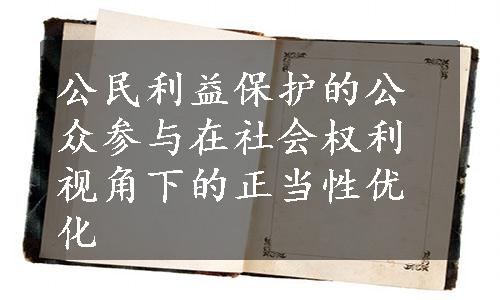 公民利益保护的公
众参与在社会权利
视角下的正当性优
化